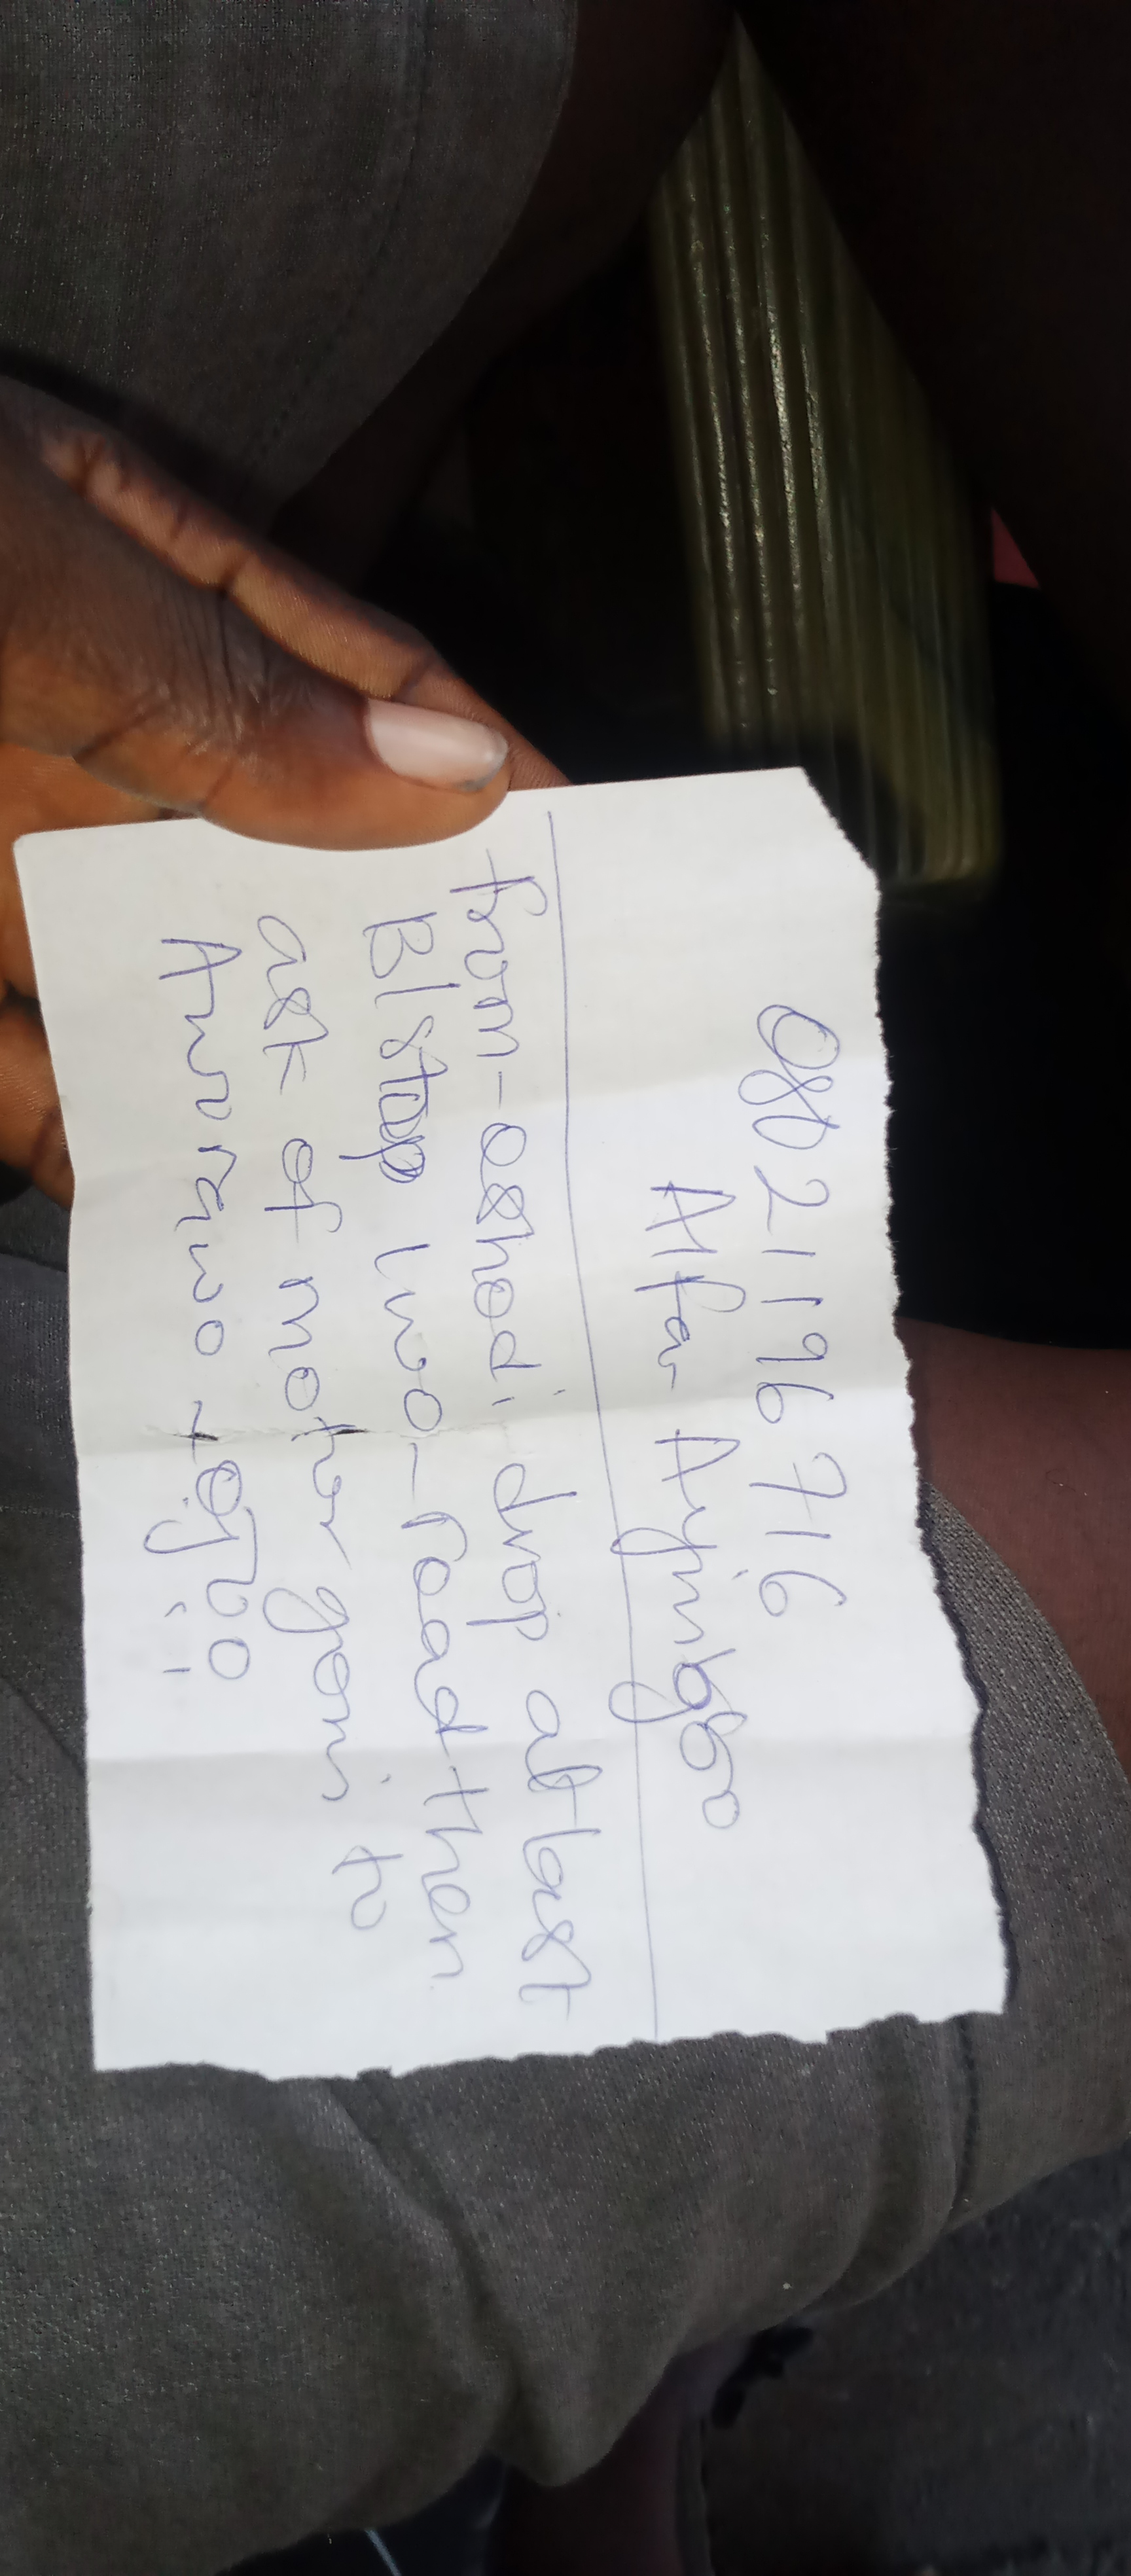 08021196716
Alfa Ayingbo
from-oshodi, drop at last
B/stop Iwo-road then
ask of motor going to